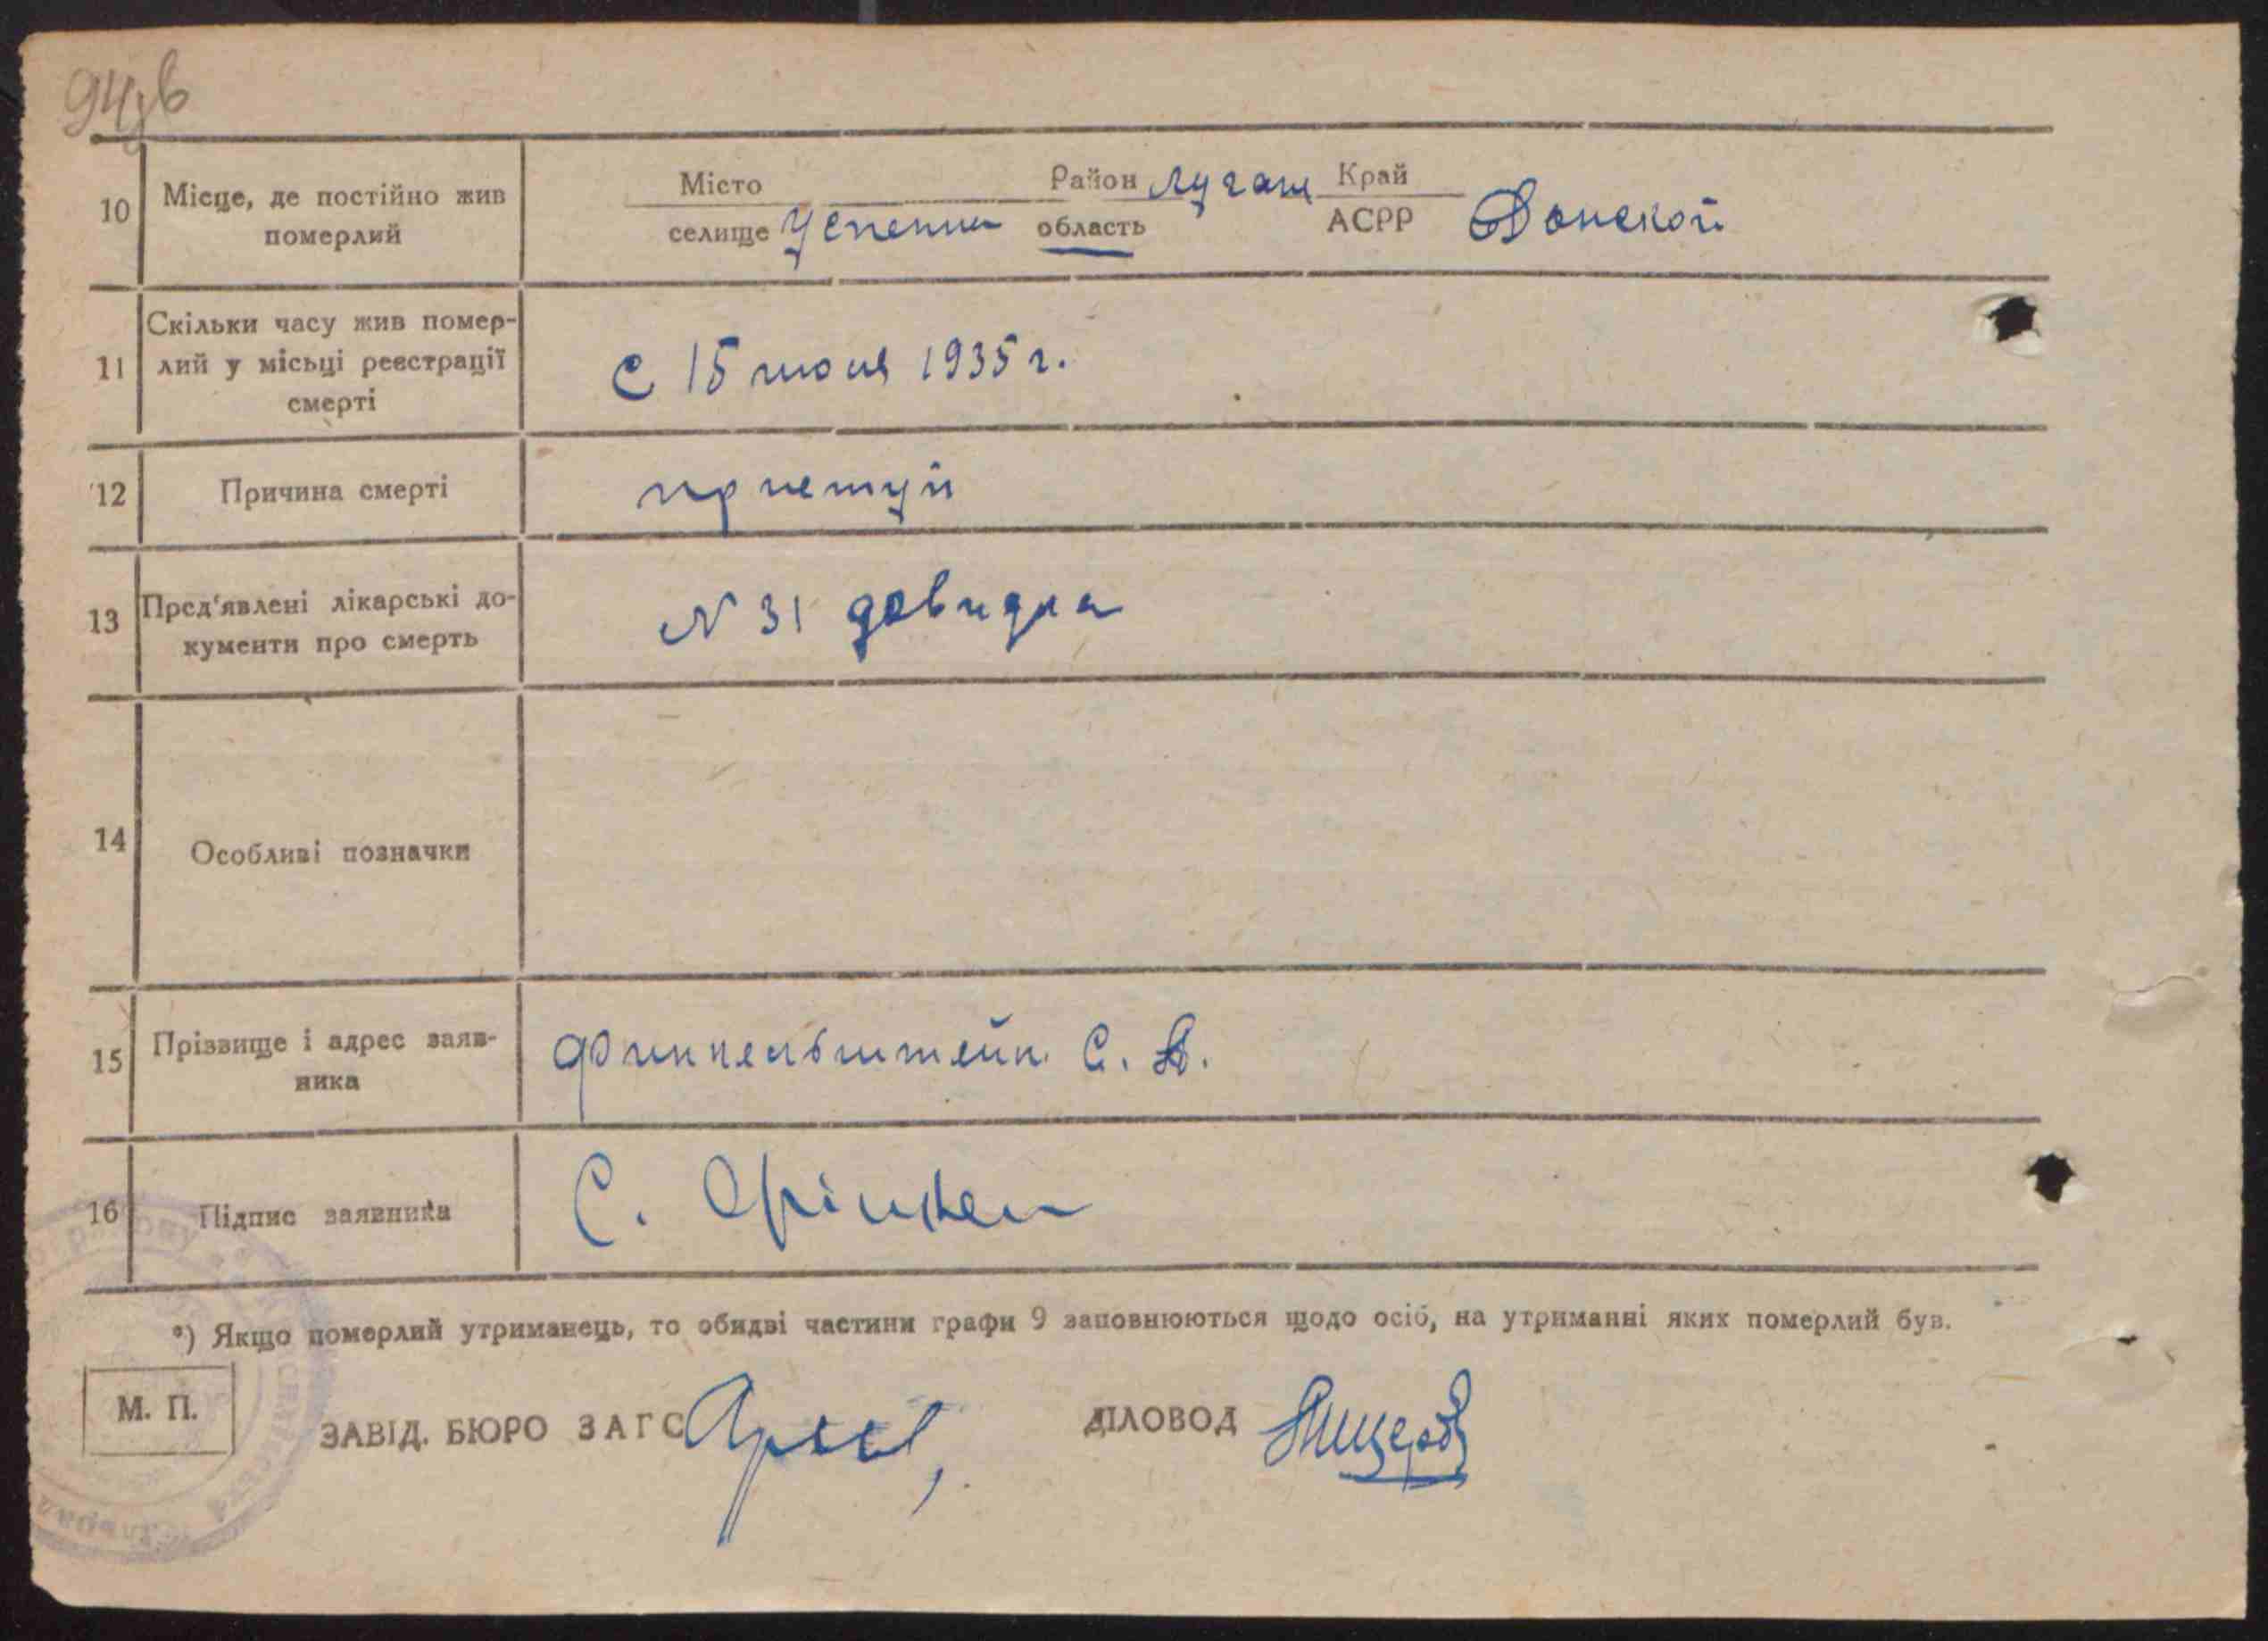 94зв
Місто Район Лугаш Край
10 Місце, де постійно жив померлий
селище Успенка область АСРР Донской
11 Скільки часу жив помер-
лий у місьці реєстрації
смерті
С 15 июня 1935 г.
12 Причина смерті приступ
13 Пред'явлені лікарські до-
кументи про смерть
N 31 довидка
14 Особливі позначки
15 Прізвище і адрес заяв-
ника
Финкельштейн С. А.
16 Підпис заявника С. Фінкел
*) Якщо померлий утриманець, то обидві частини графи 9 заповнюються щодо осіб, на утриманні яких померлий був.
М. П.
ЗАВІД. БЮРО ЗАГС ДІЛОВОД